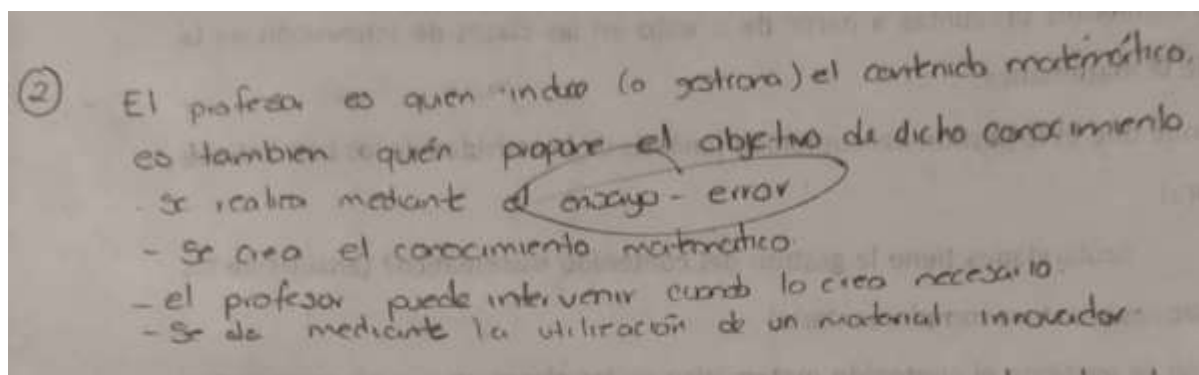 ② El profesor es quien induce (o gestiona) el contenido matemático,
es tambien quién propone el objetivo de dicho conocimiento
- Se realiza mediante el ensayo - error
- Se crea el conocimiento matemático
- el profesor puede intervenir cuando lo crea necesario
- Se da mediante la utilización de un material innovador